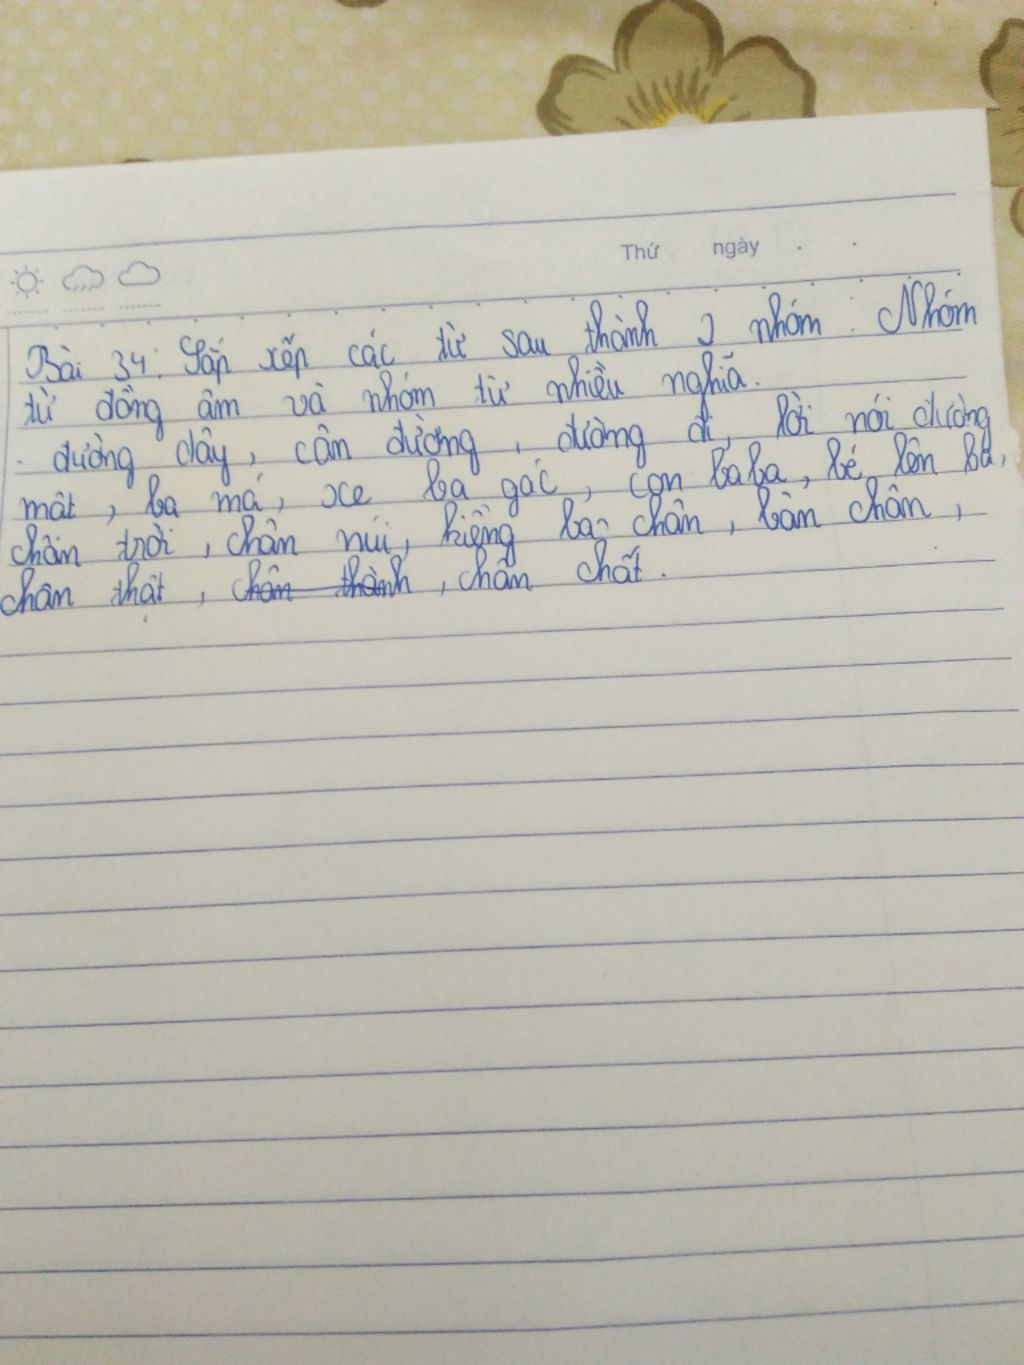 Thứ ngày
Bài 34: Sắp xếp các từ sau thành 2 nhóm. Nhóm
từ đồng âm và nhóm từ nhiều nghĩa.
đường dây, cân đường, đường đi, lời nói đường
mật, ba má, xe ba gác, con baba, bé lên ba,
chân trời, chân núi, kiềng ba chân, bàn chân,
chân thật, chân thành, chân chất.